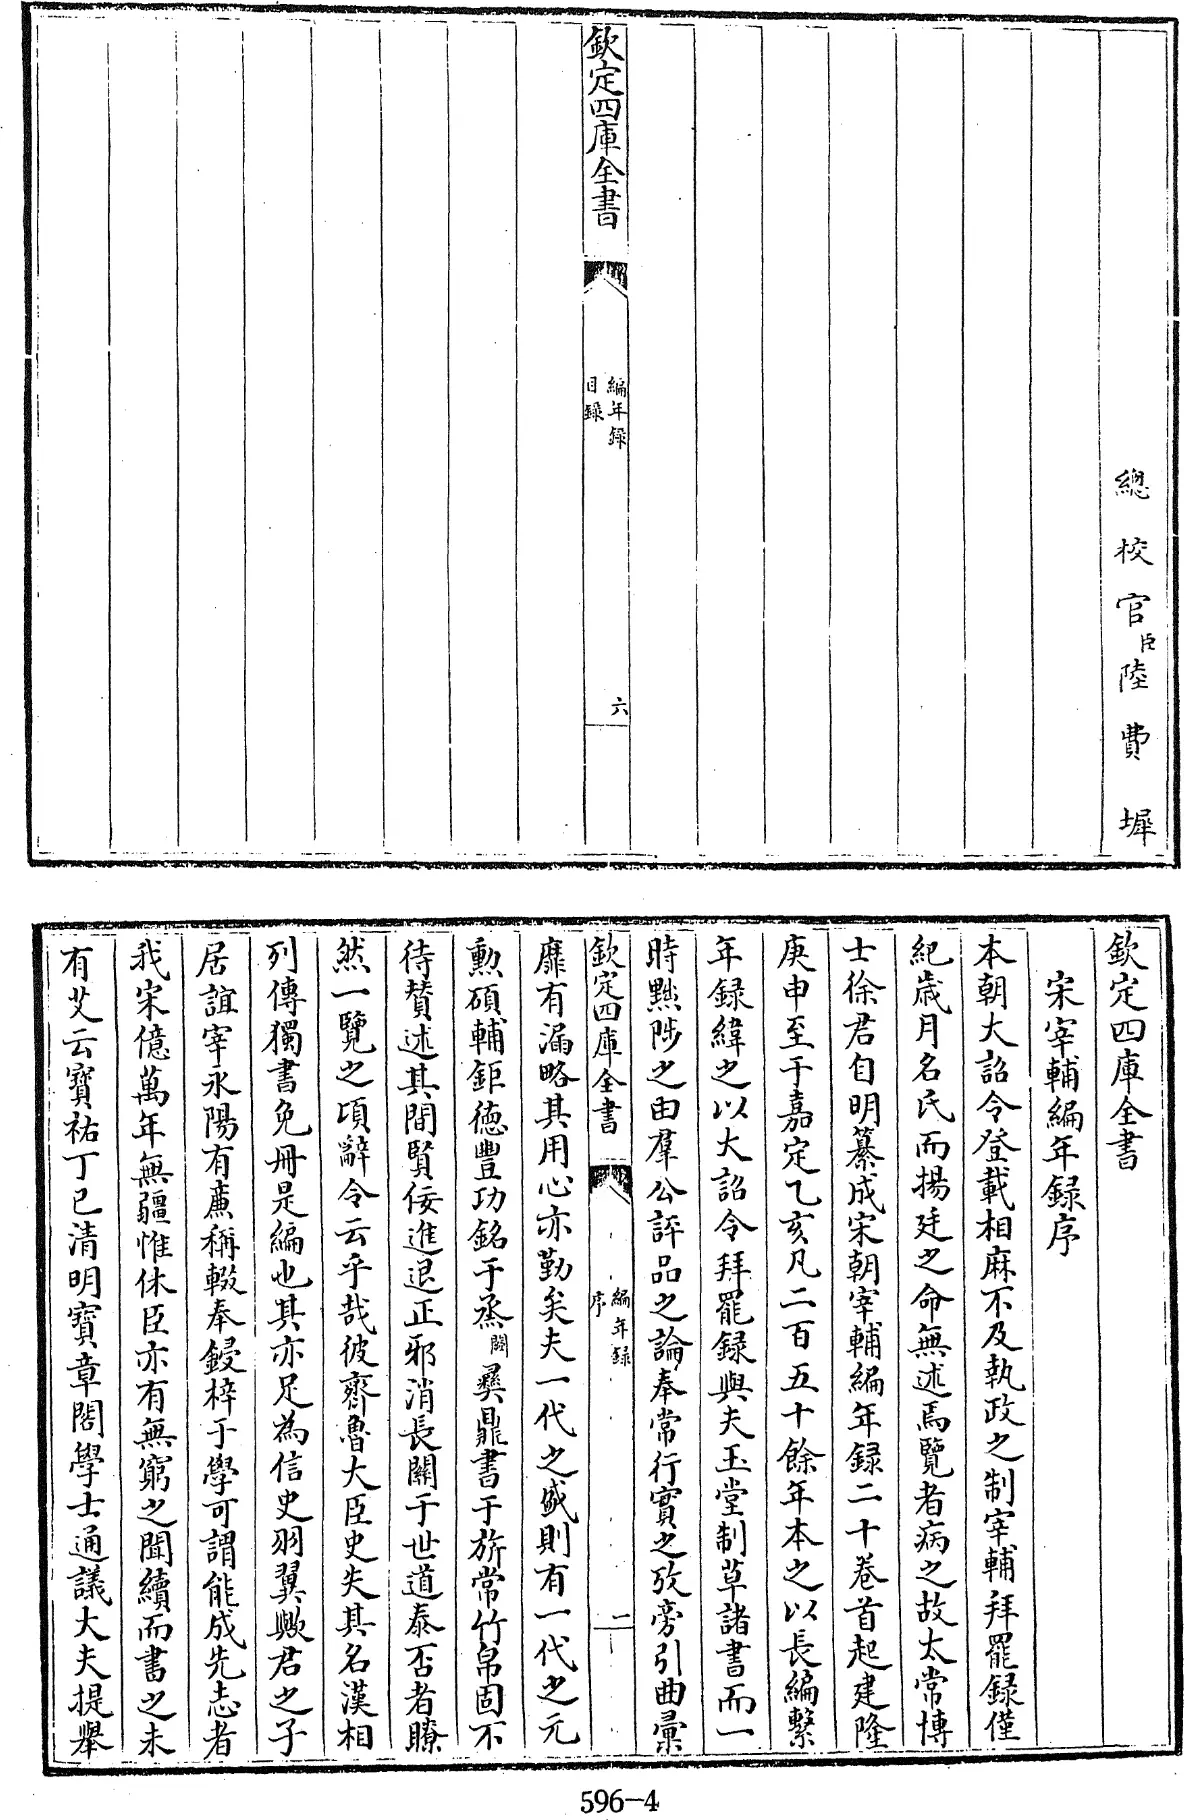 總校官臣陸費墀
欽定四庫全書
編年錄
目錄
六
欽定四庫全書
宋宰輔編年録序
本朝大詔令登載相麻不及執政之制宰輔拜罷録僅
紀歲月名氏而揚廷之命無述焉覽者病之故太常博
士徐君自明纂成宋朝宰輔編年録二十卷首起建隆
庚申至于嘉定乙亥凡二百五十餘年本之以長編繫
年録緯之以大詔令拜罷録與夫玉堂制草諸書而一
時黜陟之由羣公評品之論奉常行實之攷旁引曲彙
欽定四庫全書
編年録
序
二
靡有漏略其用心亦勤矣夫一代之盛則有一代之元
勲碩輔鉅徳豐功銘于烝闕彛鼎書于旂常竹帛固不
待賛述其間賢佞進退正邪消長關于世道泰否者瞭
然一覽之頃辭令云乎哉彼齊魯大臣史失其名漢相
列傳獨書免冊是編也其亦足為信史羽翼歟君之子
居誼宰永陽有亷稱輟奉鋟梓于學可謂能成先志者
我宋億萬年無疆惟休臣亦有無窮之聞續而書之未
有艾云寶祐丁巳清明寶章閣學士通議大夫提舉
596-4